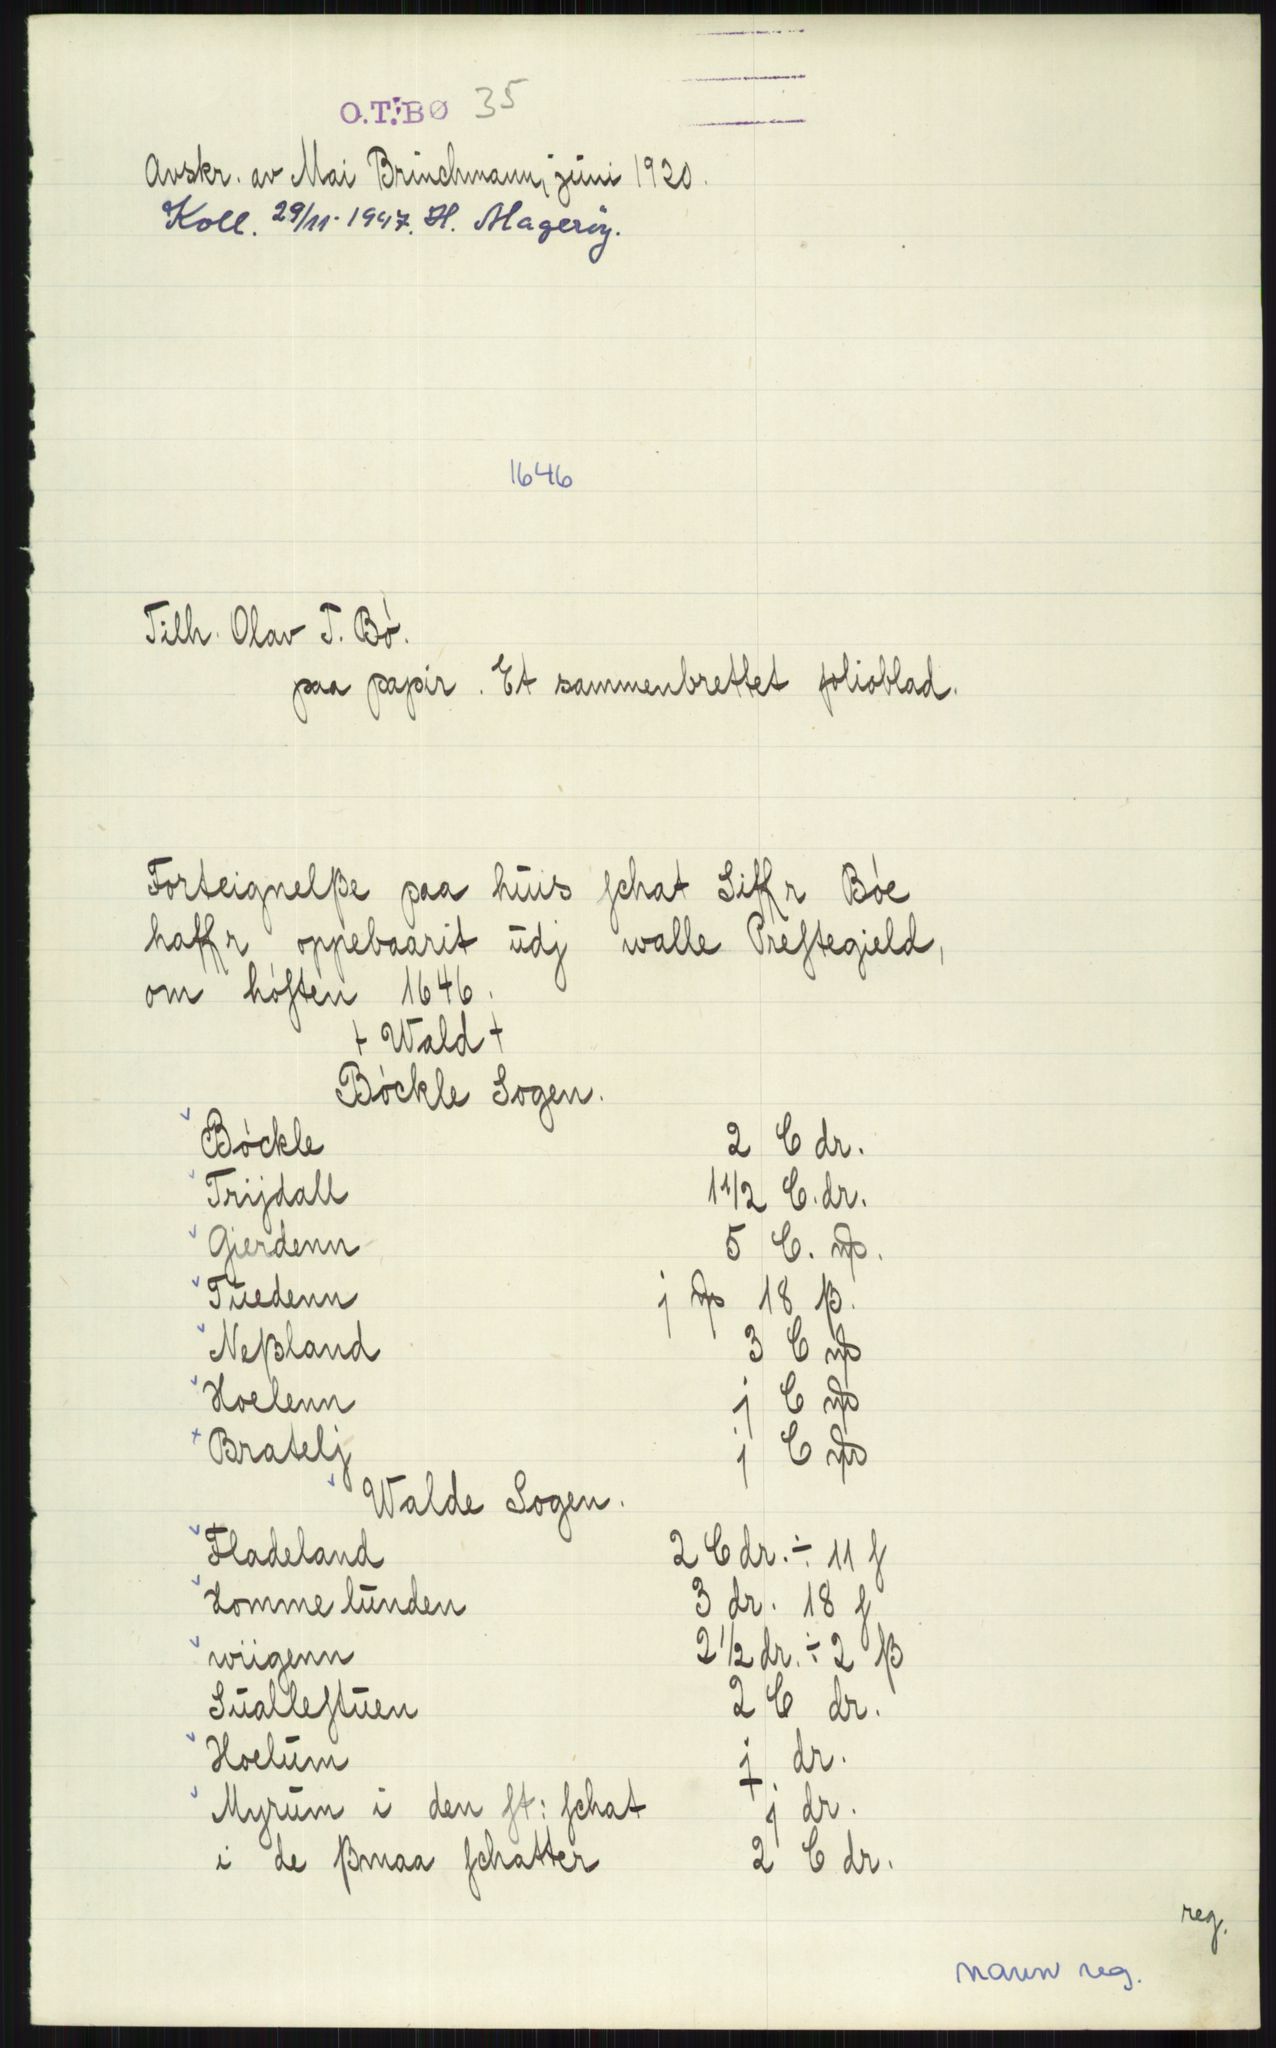 O.T. BØ 35
Avskr. av Mai Brinchmann, juni 1920.
Koll. 29/11-1947. H. Magerøy.
1646
Tilh. Olav T. Bó.
paa papir. Et sammenbrettet folioblad.
Forteignelße paa huis schat Siffr Bóe
haffr oppebaarit udj walle Prestegield,
om hósten 1646.
+ Wald +
Bóckle Sogen.
Bóckle 2 C dr.
Trijdall 1 1/2 C. dr.
Gierdenn 5 C.
Tuedenn j 18 ß.
Neßland 3 C
Hoelenn j C
Bratelj j C
Walde Sogen.
Fladeland 2 C dr. ÷ 11 ſ
Homme lunden 3 dr. 18 ſ
wiigenn 2 1/2 dr. ÷ 2 ß
Suallestuen 2 C dr.
Hoelum j dr.
Myrum i den st: schat j dr.
i de ßmaa schatter 2 C dr.
reg.
navn reg.